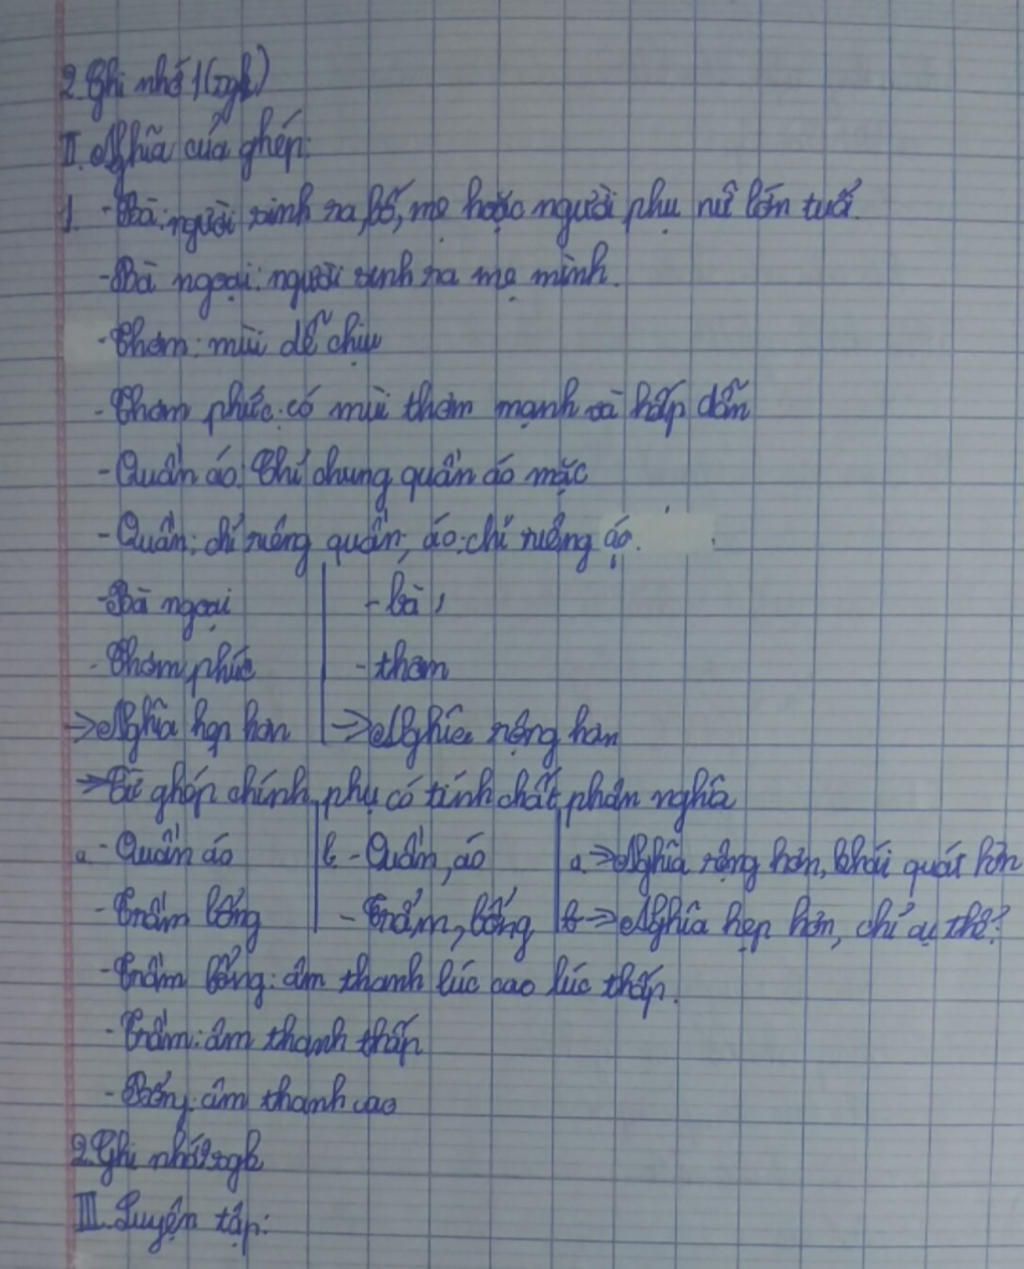 2. Ghi nhớ 1 (sgk)
II. Nghĩa của ghép:
1. - Bà: người sinh ra, bố, mẹ hoặc người phụ nữ lớn tuổi.
- Bà ngoại: người sinh ra mẹ mình.
- Thơm: mùi dễ chịu
- Thơm phức: có mùi thơm mạnh và hấp dẫn
- Quần áo: Chỉ chung quần áo mặc
- Quần: chỉ riêng quần, áo: chỉ riêng áo.
- Bà ngoại - bà,
- Thơm phức - thơm
→ Nghĩa hẹp hơn → Nghĩa rộng hơn
→ Từ ghép chính phụ có tính chất phân nghĩa
a - Quần áo b - Quần, áo a. → Nghĩa rộng hơn, khái quát hơn
- Trầm bổng - Trầm, bổng b → Nghĩa hẹp hơn, chỉ cụ thể?
- Trầm bổng: âm thanh lúc cao lúc thấp.
- Trầm: âm thanh thấp
- Bổng: âm thanh cao
2. Ghi nhớ 2 sgk
III. Luyện tập: